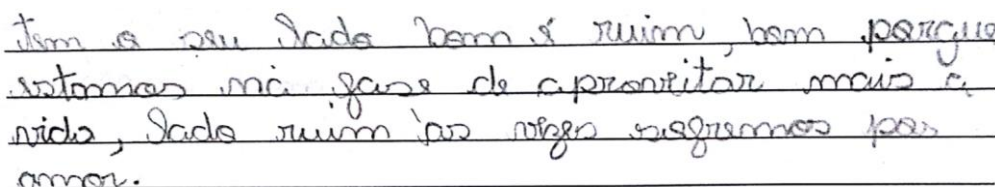 tem o seu lado bom é ruim, bom porque
estamos na fase de aproveitar mais a
vida, lado ruim às vezes sofremos por
amor.